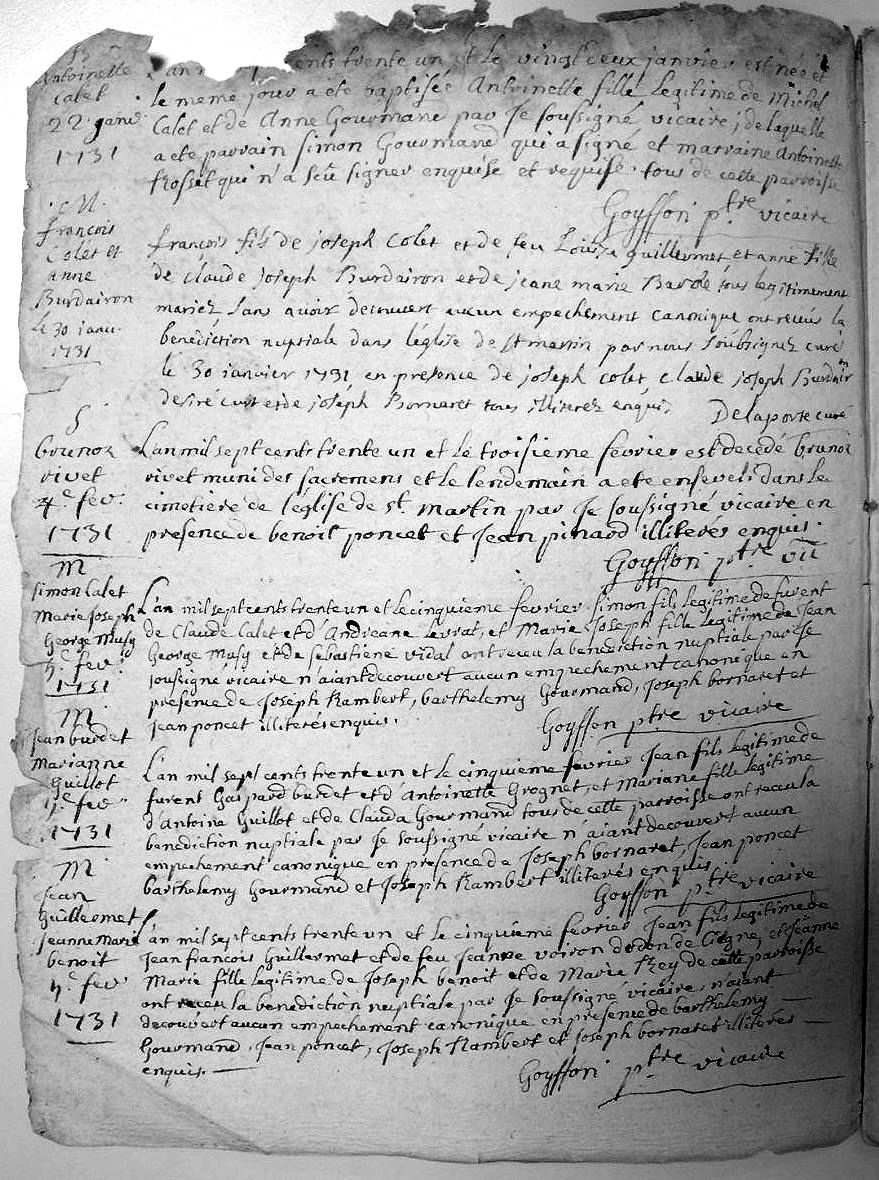 B
Antoinette
Calet
22 janv
1731
ents trente un et le vingt deux janvier est née et
le meme jour a ete baptisée Antoinette fille legitime de Michel
Calet et de Anne Gourmand par Je soussigné vicaire; de laquelle
a ete parrain simon Gourmand qui a signé et marraine Antoinette
Rosset qui n'a sceu signer enquise et requise. tous de cette parroisse
Goyffon ptre vicaire
M.
françois
Colet et
anne
Burdairon
le 30 janv.
1731
françois fils de joseph Colet et de feu Louise guillermet et anne fille
de Claude joseph Burdairon et de jeane marie tous legitimement
mariez sans avoir decouvert aucun empechement canonique ont receus la
benediction nuptiale dans l'église de st martin par nous soubsignez curé
le 30 janvier 1731 en presence de joseph Colet Claude joseph Burdairon
desiré et de joseph Bornaret tous illiterez enquis
Delaporte curé
S
brunoz
rivet
4e fev.
1731
L'an mil sept cents trente un et le troisieme fevrier est decedé brunoz
rivet muni des sacremens et le lendemain a ete enseveli dans le
cimetière de l'église de st martin par Je soussigné vicaire en
presence de benoit poncet et Jean pinard illiterés enquis.
Goyffon ptre vic
M
simon Calet
Marie Joseph
George Musy
5e fev
1731
L'an mil sept cents trente un et le cinquieme fevrier simon fils legitime de furent
de Claude Calet et d'Andreane levrat, et Marie Joseph fille legitime de Jean
George Musy et de sebastiene vidal ont receu la benediction nuptiale par Je
soussigné vicaire n'aiant decouvert aucun empechement canonique en
presence de Joseph Rambert, barthelemy Gourmand, Joseph bornaret et
Jean poncet illiterés enquis.
Goyffon ptre vicaire
M
Jean burdet
Marianne
Guillot
5e fev
1731
L'an mil sept cents trente un et le cinquieme fevrier Jean fils legitime de
furent Gaspard burdet et d'Antoinette Grognet, et Mariane fille legitime
d'Antoine Guillot et de Clauda Gourmand tous de cette parroisse ont receu la
benediction nuptiale par Je soussigné vicaire n'aiant decouvert aucun
empechement canonique en presence de Joseph bornaret, Jean poncet
barthelemy Gourmand et Joseph Rambert illiterés enquis
Goyffon ptre vicaire
M
Jean
Guillermet
Jeanne Marie
benoit
5e fev
1731
L'an mil sept cents trente un et le cinquieme fevrier Jean fils legitime de
Jean francois Guillermet et de feu Jeanne voiron de et Jeanne
Marie fille legitime de Joseph benoit et de Marie Rey de cette parroisse
ont receu la benediction nuptiale par Je soussigné vicaire, n'aiant
decouvert aucun empechement canonique en presence de barthelemy
Gourmand, Jean poncet, Joseph Rambert et Joseph bornaret illiterés
enquis.
Goyffon ptre vicaire